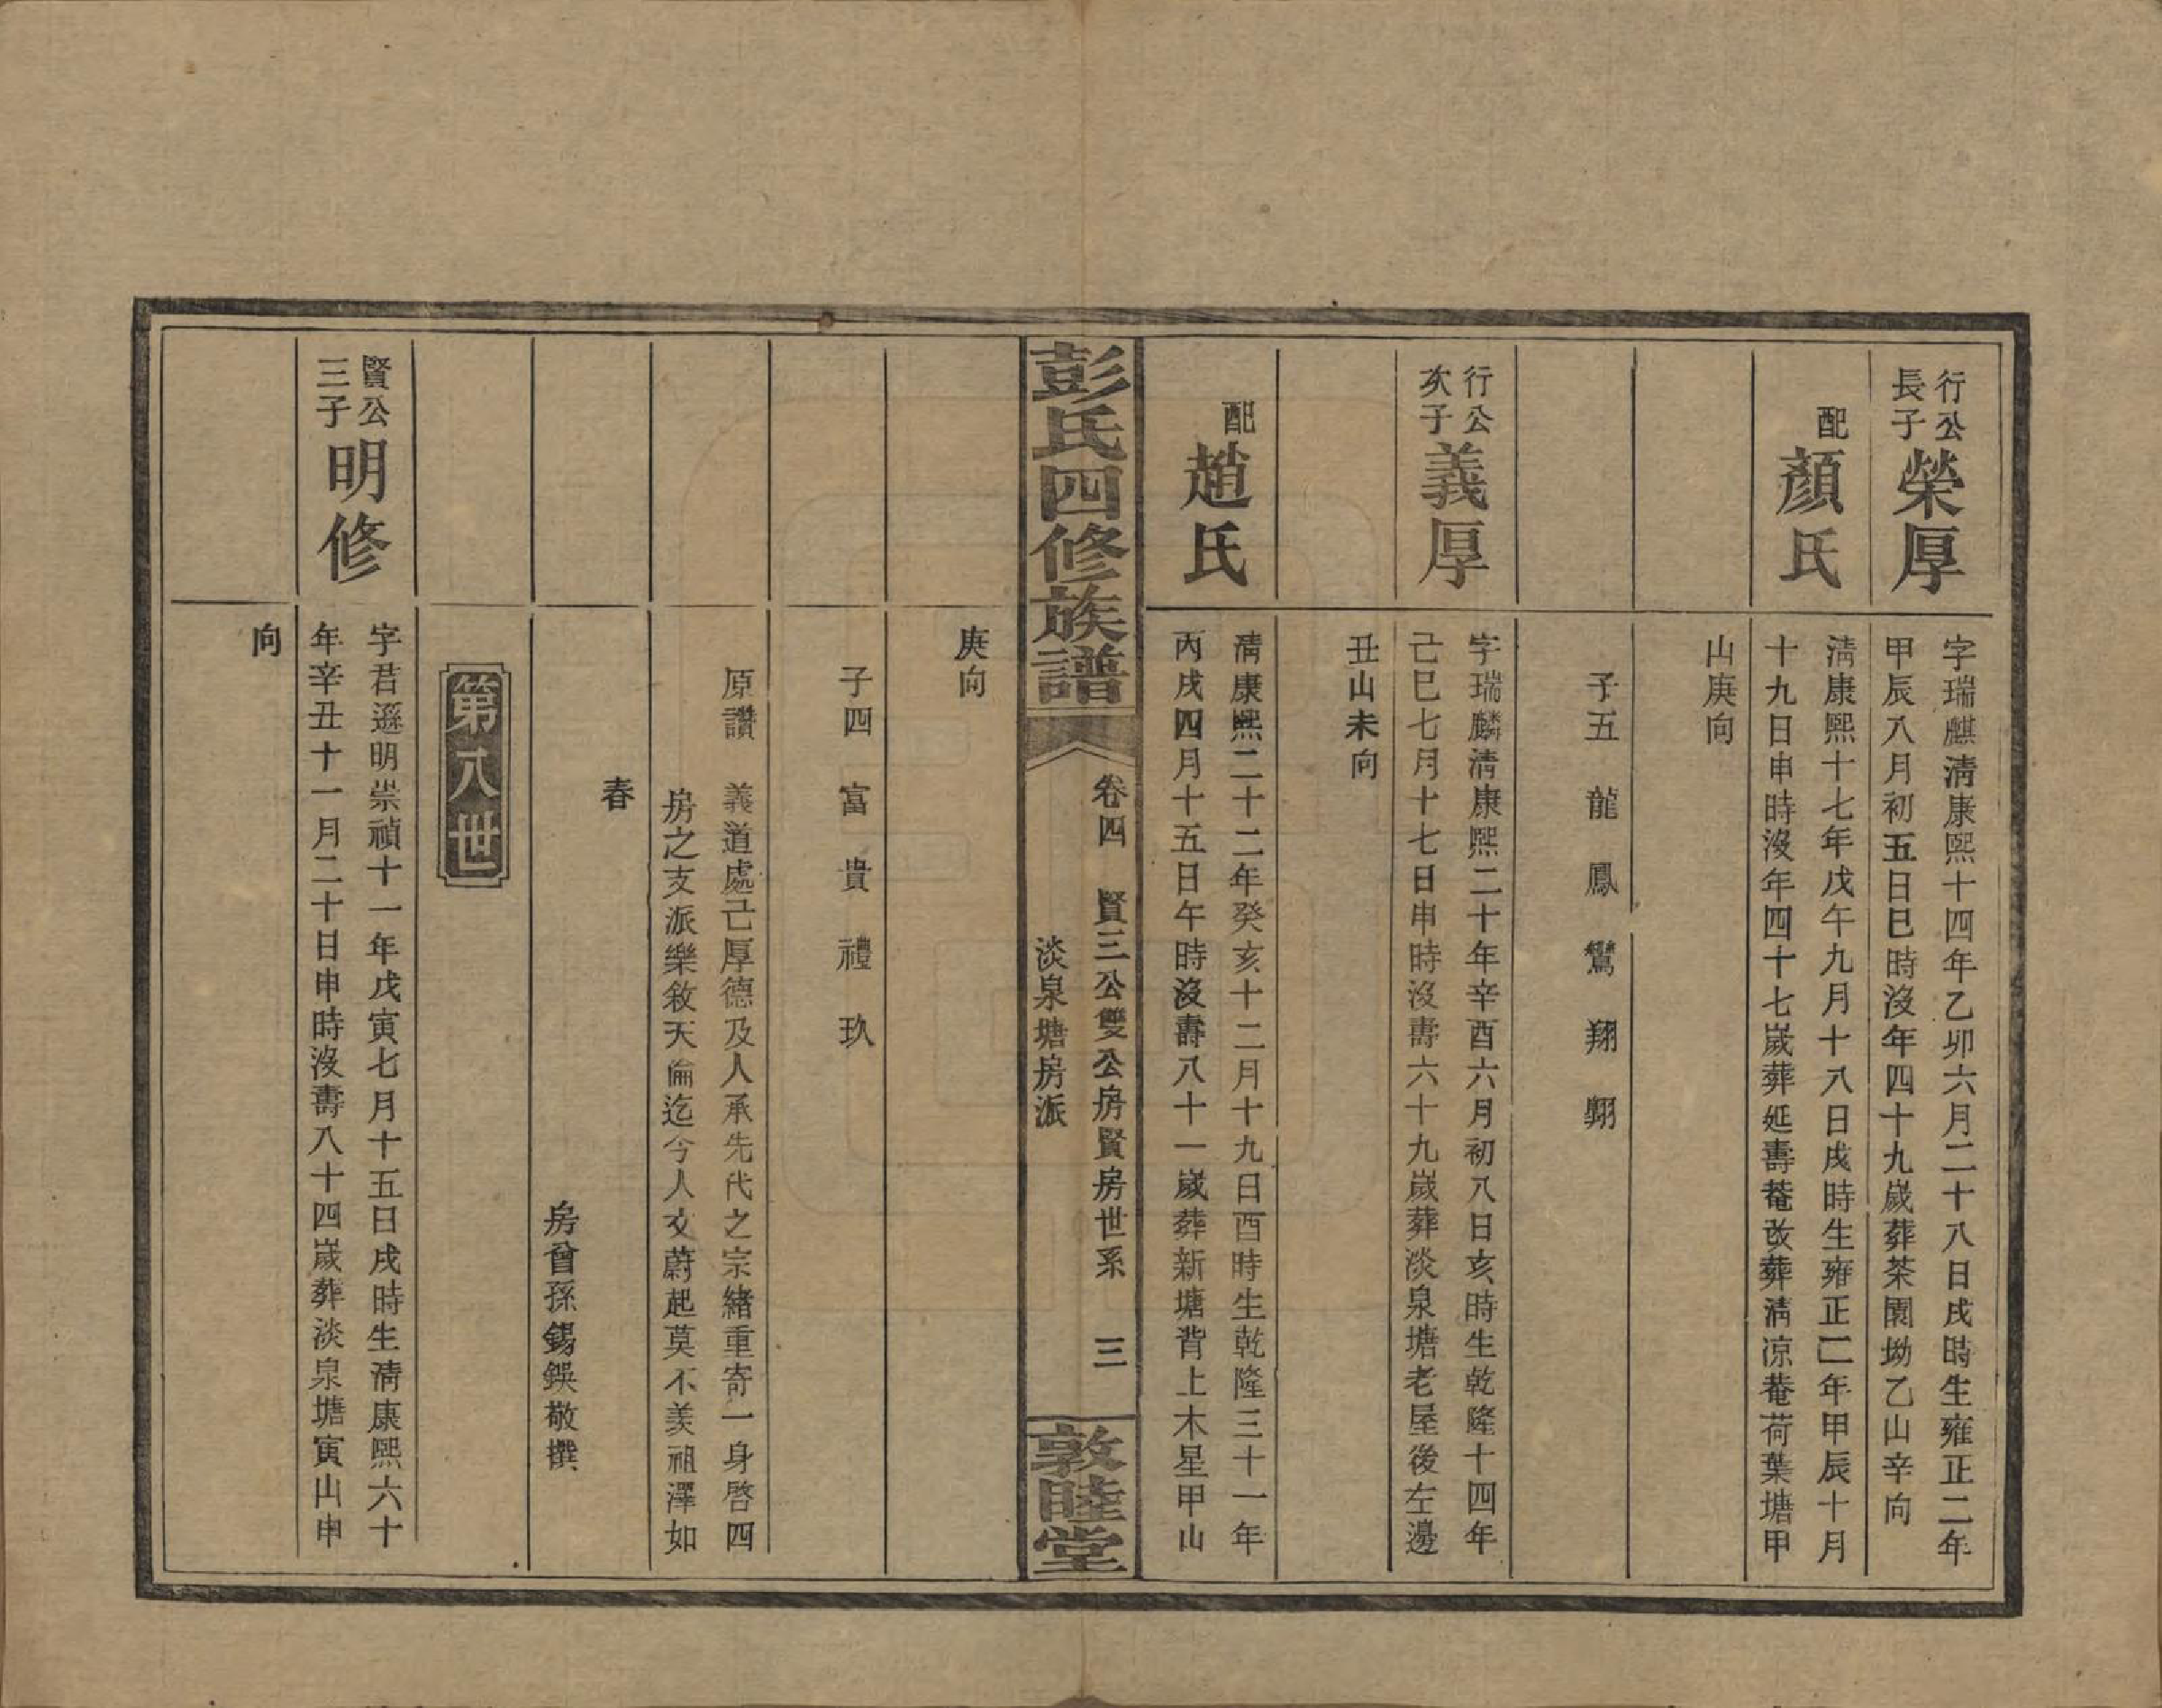 行公
長子
榮厚
字瑞麒淸康熙十四年乙卯六月二十八日戌時生雍正二年
甲辰八月初五日巳時沒年四十九歲葬茶園坳乙山辛向
配
顏氏
淸康熙十七年戊午九月十八日戌時生雍正二年甲辰十月
十九日申時沒年四十七歲葬延壽菴改葬淸凉菴荷葉塘甲
山庚向
子五 龍 鳳 鸞 翔 翺
行公
次子
義厚
字瑞麟淸康熙二十年辛酉六月初八日亥時生乾隆十四年
己巳七月十七日申時沒壽六十九歲葬淡泉塘老屋後左邊
丑山未向
配
趙氏
淸康熙二十二年癸亥十二月十九日酉時生乾隆三十一年
丙戌四月十五日午時沒壽八十一歲葬新塘背上木星甲山
彭氏四修族譜
卷四 賢三公雙公房賢房世系 三
淡泉塘房派
敦睦堂
庚向
子四 富 貴 禮 玖
原讚 義道處己厚德及人承先代之宗緒重寄一身啓四
房之支派樂敘天倫迄今人文蔚起莫不羨祖澤如
春
房曾孫錫鍈敬撰
第八世
賢公
三子
明修
字君遜明崇禎十一年戊寅七月十五日戌時生淸康熙六十
年辛丑十一月二十日申時沒壽八十四歲葬淡泉塘寅山申
向